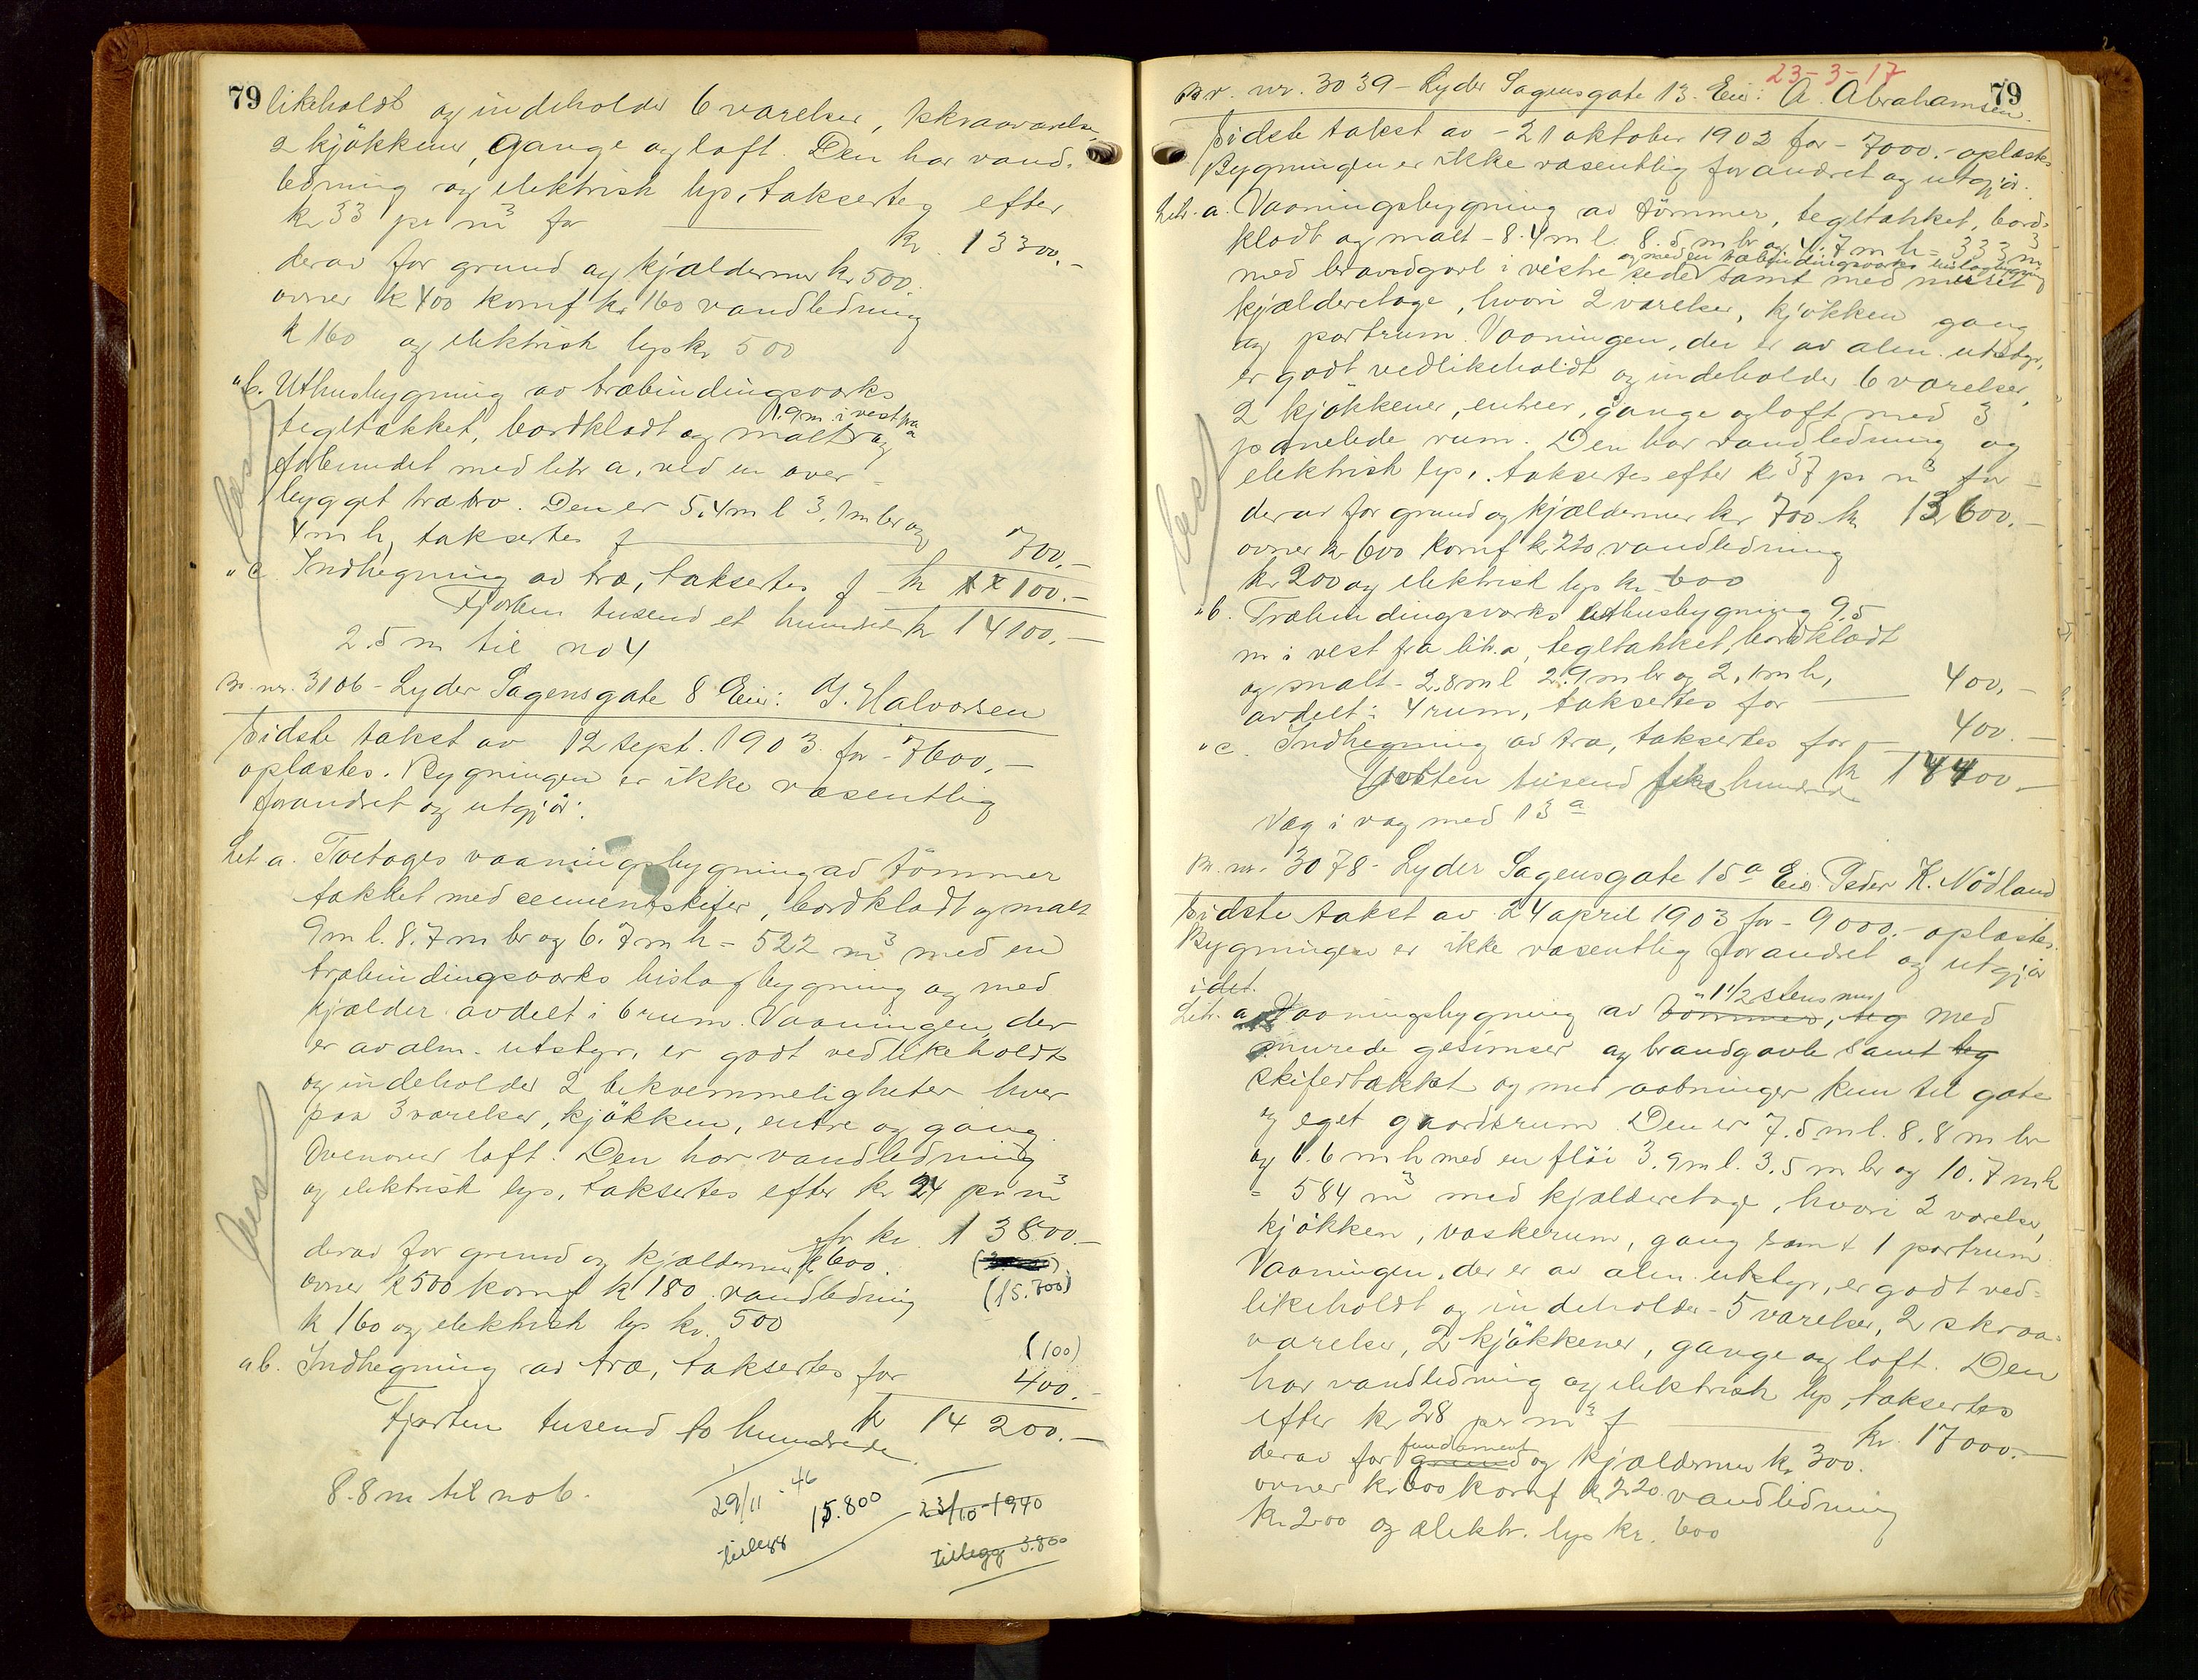 79
likeholdt og indeholder 6 værelser, 1 skraaværelse
2 kjøkkener, gange og loft. Den har vand-
ledning og elektrisk lys, taksertes efter
kr 33 pr m³ for kr. 13300.-
derav for grund og kjældermur kr 500.
ovner kr 400 komf kr 160 vandledning
kr 160 og elektrisk lys kr 500
"b. Uthusbygning av træbindingsverks
1.9 m i vest fra a
tegltækket, bordklædt og malt og
forbundet med litr a, ved en over-
bygget træbro. Den er 5.4 m l 3.1 m br og
4 m h, taksertes f 700.-
"c Indhegning av træ, taksertes f kr 100.-
Fjorten tusend et hundrede kr 14100.-
2.5 m til no 4
Br. nr. 3106 - Lyder Sagensgate 8 Eier: G. Halvorsen
Sidste takst av 12 sept. 1903 for - 7600.-
oplæstes. Bygningen er ikke væsentlig
forandret og utgjør:
Lit a. Toetages vaaningsbygning av tømmer
tækket med cementskifer, bordklædt og malt
9 m l. 8.7 m br og 6.7 m h = 522 m³ med en
træbindingsverks bislagbygning og med
kjælder avdelt i 6 rum. Vaaningen, der
er av alm. utstyr, er godt vedlikeholdt
og indeholder 2 bekvemmeligheter hver
paa 3 værelser, kjøkken, entre og gang.
Ovenover loft. Den har vandledning
og elektrisk lys, taksertes efter kr 24 pr m³
for kr. 13800.-
derav for grund og kjældermur kr 600.
ovner kr 500 komf kr 180 vandledning (15.700)
kr 160 og elektrisk lys kr. 500
(100)
"b. Indhegning av træ, taksertes for 400.-
Fjorten tusend to hundrede kr 14200.-
8.8 m til no 6.
29/11 - 46
tillegg 15.800
23/10-1940
tillegg 3.800
23-3-17
79
Br. nr. 3039 - Lyder Sagensgate 13. Eier: A. Abrahamsen.
Sidste takst av - 21 oktober 1902 for - 7000.- oplæstes
Bygningen er ikke væsentlig forandret og utgjør.
Litr. a. Vaaningsbygning av tømmer, tegltækket, bord-
klædt og malt - 8.4 m l. 8.5 m br og 4.7 m h = 333 m³
og med en træbindingsverks bislagbygning
med brandgavl i vestre side samt med muret
kjælderetage, hvori 2 værelser, kjøkken gang
og portrum. Vaaningen, der er av alm. utstyr,
er godt vedlikeholdt og indeholder 6 værelser,
2 kjøkkener, entreer, gange og loft med 3
panelede rum. Den har vandledning og
elektrisk lys, taksertes efter kr 37 pr m³ for -
derav for grund og kjældermur kr 700 kr 13600.-
ovner kr 600 komf kr 220 vandledning
kr 200 og elektrisk lys kr 600
"b. Træbindingsverks uthusbygning 9.5
m i vest fra litr. a, tegltækket, bordklædt
og malt - 2.8 m l 2.9 m br og 2.1 m h,
avdelt i 4 rum, taksertes for 400.-
"c. Indhegning av træ, taksertes for 400.-
Fjorten tusend fire hundrede kr 14400.-
Væg i væg med 13 a
Br. nr. 3078 - Lyder Sagensgate 15 a Eier Peder K. Nødland
Sidste takst av 24 april 1903 for - 9000.- oplæstes.
Bygningen er ikke væsentlig forandret og utgjør
idet.
Litr. a Vaaningsbygning av tømmer, teg 1 1/2 stens mur med
murede gesimser og brandgavle samt teg
skifertækket og med aabninger kun til gate
og eget gaardsrum. Den er 7.5 m l. 8.8 m br
og 6.6 m h med en fløi 3.9 m l. 3.5 m br og 10.7 m h
= 584 m³ med kjælderetage, hvori 2 værelser,
kjøkken, vaskerum, gang samt 1 portrum.
Vaaningen, der er av alm. utstyr, er godt ved-
likeholdt og indeholder - 5 værelser, 2 skraa-
værelser, 2 kjøkkener, gange og loft. Den
har vandledning og elektrisk lys, taksertes
efter kr 28 pr m³ f kr. 17000.-
derav for grund fundament og kjældermur kr 300.
ovner kr 600 komf kr 220 vandledning
kr. 200 og elektr. lys kr. 600